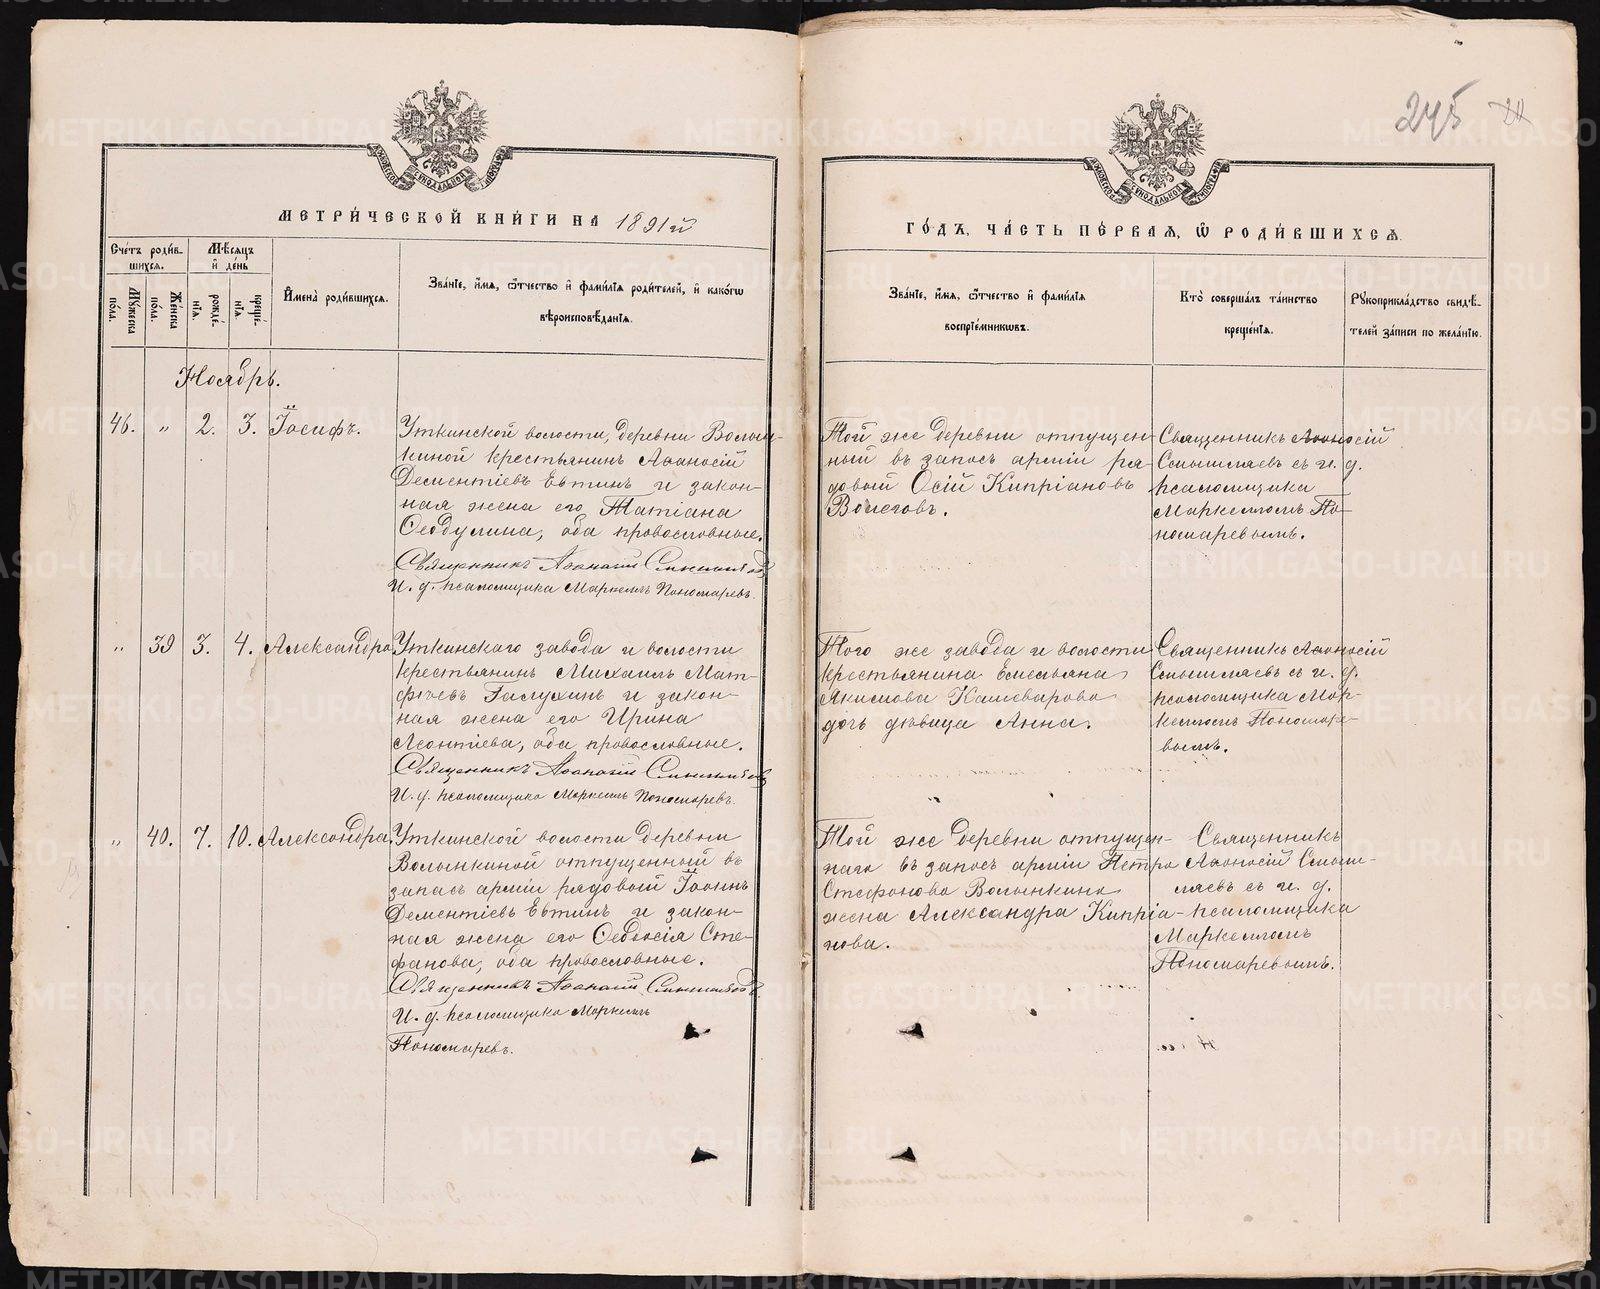 245
МЕТРИ́ЧЕСКОЙ КНИ́ГИ НА 1891й
ГО́ДЪ, ЧА́СТЬ ПЕ́РВАЯ, Ѡ РОДИ́ВШИХСЯ.
Сче́тъ роди́в-
шихся.
Мѣ́сяцъ
и́ де́нь
Му́жеска
по́ла.
Же́нска
по́ла.
рожде́-
нїя.
креще́-
нїя.
И́мена̀ роди́вшихся.
Зва́нїе, и́мя, ѻ́тчество и́ фами́лїя роди́телей, и́ како́гѡ
вѣроисповѣ́данїя.
Зва́нїе, и́мя, ѻ́тчество и́ фами́лїя
воспрїе́мникѡвъ.
Кто̀ соверша́лъ та́инство
креще́нїя.
Рꙋкоприкла́дство свидѣ́-
телей за́писи по жела́нїю.
Ноябрь.
46. „ 2. 3. Іосифъ.
Уткинской волости, деревни Волын-
киной крестьянинъ Аѳанасій
Дементіевъ Евтинъ и закон-
ная жена его Татіана
Ѳеодулина, оба православные.
Священникъ Аѳанасій Смышляевъ
И. д. псаломщика Маркеллъ Пономаревъ.
Той же деревни отпущен-
ный въ запасъ арміи ря-
довой Осій Кипріановъ
Волеговъ.
Священникъ Аѳанасій
Смышляевъ съ и. д.
псаломщика
Маркелломъ По-
номаревымъ.
„ 39 3. 4. Александра
Уткинскаго завода и волости
крестьянинъ Михаилъ Мат-
фіевъ Галухинъ и закон-
ная жена его Ирина
Леонтіева, оба православные.
Священникъ Аѳанасій Смышляевъ
И. д. псаломщика Маркеллъ Пономаревъ.
Того же завода и волости
крестьянина Емельяна
Акимова Кашеварова
дочь дѣвица Анна.
Священникъ Аѳанасій
Смышляевъ съ и. д.
псаломщика Мар-
келломъ Пономаре-
вымъ.
„ 40. 7. 10. Александра.
Уткинской волости деревни
Волынкиной отпущенный въ
запасъ арміи рядовой Іоаннъ
Дементіевъ Евтинъ и закон-
ная жена его Ѳеодосія Сте-
фанова, оба православные.
Священникъ Аѳанасій Смышляевъ.
И. д. псаломщика Маркеллъ
Пономаревъ.
Той же деревни отпущен-
наго въ запасъ арміи Петра
Стефанова Волынкина
жена Александра Кипріа-
нова.
Священникъ
Аѳанасій Смыш-
ляевъ съ и. д.
псаломщика
Маркелломъ
Пономаревымъ.
METRIKI.GASO-URAL.RU